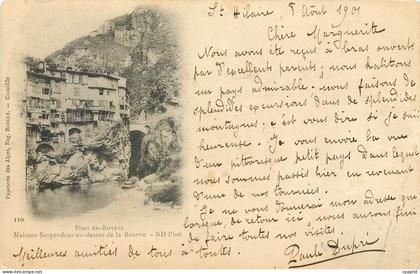 St Hilaire, 8 Août 1901
Chère Marguerite
Nous avons été reçus à bras ouverts
par d'excellents parents; nous habitons
un pays admirable. nous faisons de
splendides excursions dans de splendides
montagnes; c'est vous dire si je suis
heureuse. Je vous envoie la vue
d'un pittoresque petit pays dans lequel
nous sommes passés hier en revenant
d'une de nos tournées.
Je ne vous donnerai mon adresse que
lorsque, de retour ici, nous aurons fini
de faire toutes nos visites
Meilleures amitiés de tous à toutes.
Paule Dupré
Papeterie des Alpes, Eug. Robert. — Grenoble
110
PONT-EN-ROYANS
Maisons Suspendues au-dessus de la Bourne. — ND Phot